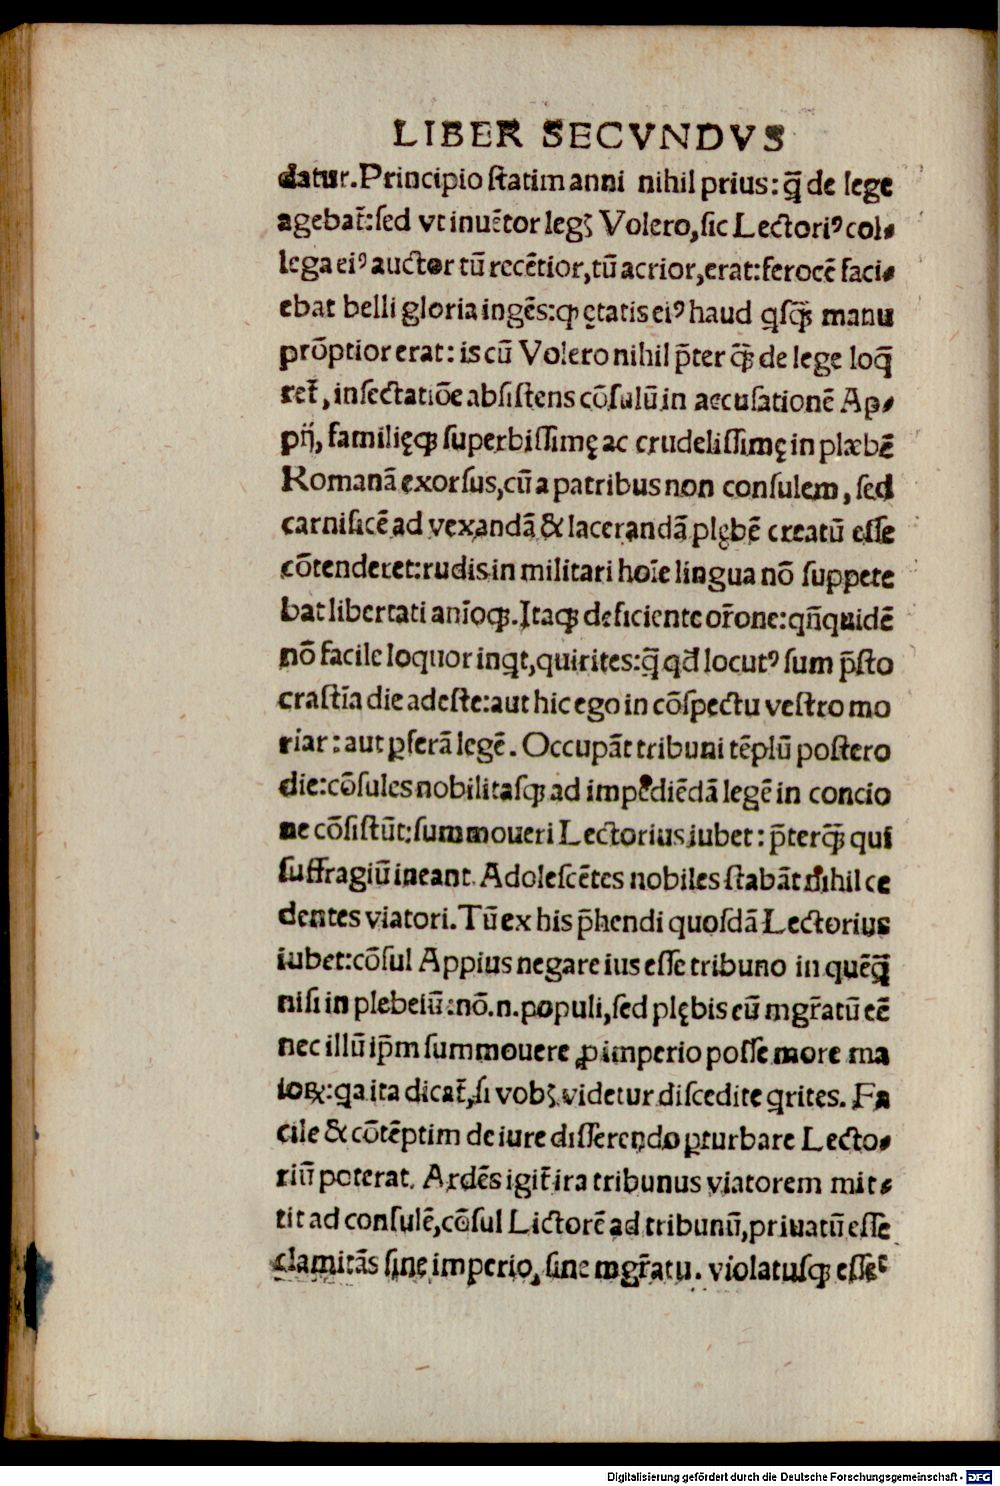 LIBER SECVNDVS
datur. Principio ſtatim anni nihil prius: q̄ de lege
agebat̃: ſed vt inuētor legꝫ Volero, ſic Lectoriꝰ col⸗
lega eiꝰ auctor tū recētior, tū acrior, erat: ferocē faci⸗
ebat belli gloria ingēs: ꝙ ętatis eiꝰ haud qſꝙ̄ manu
prōptior erat: is cū Volero nihil p̄ter ꝙ̄ de lege loq̄
ret̃, inſectatiōe abſiſtens cōſulū in accuſationē Ap⸗
pij, familięqꝫ ſuperbiſſimę ac crudeliſſimę in plæbē
Romanā exorſus, cū a patribus non conſulem, ſed
carnificē ad vexandā & lacerandā plębē creatū eſſe
cōtenderet: rudis in militari hoīe lingua nō ſuppete
bat libertati anīoqꝫ. Itaqꝫ deficiente or̃one: qn̄quidē
nō facile loquor inqt, quirites: q̄ qd̄ locutꝰ ſum p̄ſto
craſtīa die adeſte: aut hic ego in cōſpectu veſtro mo
riar: aut ꝑferā legē. Occupāt tribuni tēplū poſtero
die: cōſules nobilitaſqꝫ ad impediēdā legē in concio
ne cōſiſtūt: ſummoueri Lectorius iubet: p̄terꝙ̄ qui
ſuffragiū ineant. Adoleſcētes nobiles ſtabāt nihil ce
dentes viatori. Tū ex his p̄hendi quoſdā Lectorius
iubet: cōſul Appius negare ius eſſe tribuno in quēq̄
niſi in plebeiū: nō .n. populi, ſed plębis eū mgr̃atū eē
nec illū ip̄m ſummouere ꝓ imperio poſſe more ma
ioꝝ: qa ita dicat̃, ſi vobꝫ videtur diſcedite qrites. Fa
cile & cōtēptim de iure diſſerendo ꝑturbare Lecto⸗
riū poterat. Ardēs igit̃ ira tribunus viatorem mit⸗
tit ad conſulē, cōſul Lictorē ad tribunū, priuatū eſſe
clamitās ſine imperio, ſine mgr̃atu. violatuſqꝫ eſſe
Digitalisierung gefördert durch die Deutsche Forschungsgemeinschaft - DFG